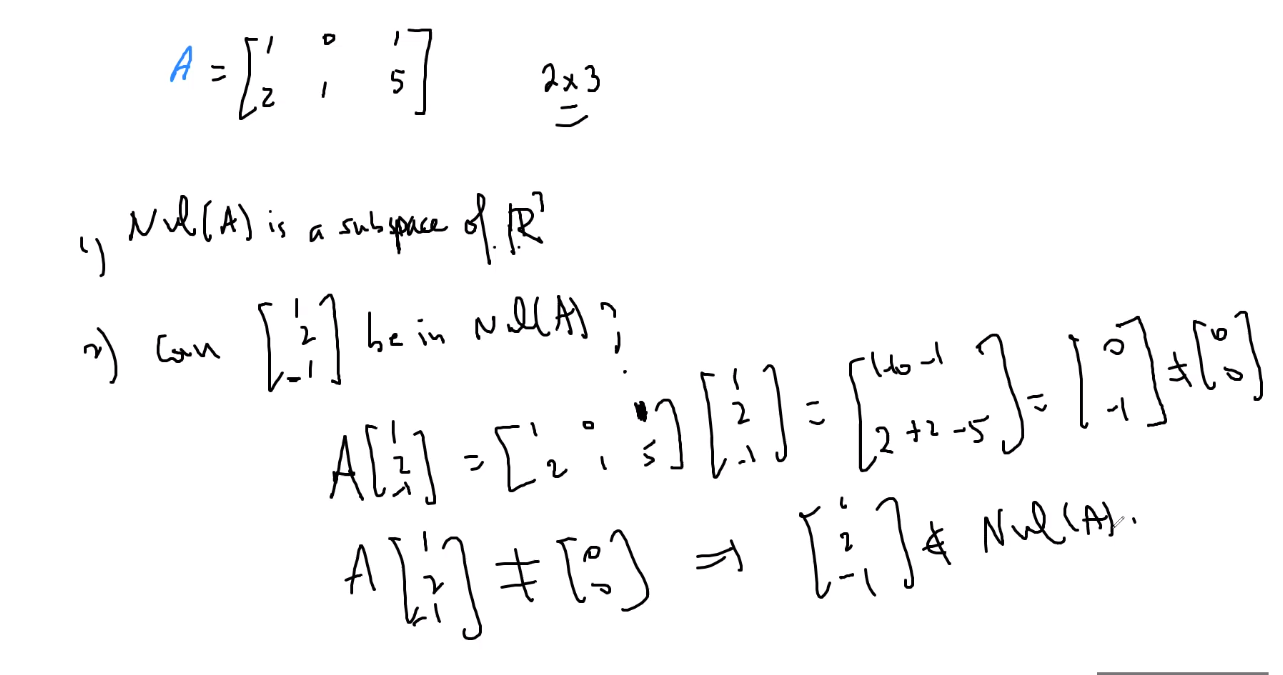 A = [1 0 1; 2 1 5]   2x3
1) Nul(A) is a subspace of ℝ³
2) Can [1; 2; -1] be in Nul(A)?
A[1; 2; -1] = [1 0 1; 2 1 5] [1; 2; -1] = [1+0-1; 2+2-5] = [0; -1] ≠ [0; 0]
A[1; 2; -1] ≠ [0; 0] ⇒ [1; 2; -1] ∉ Nul(A).